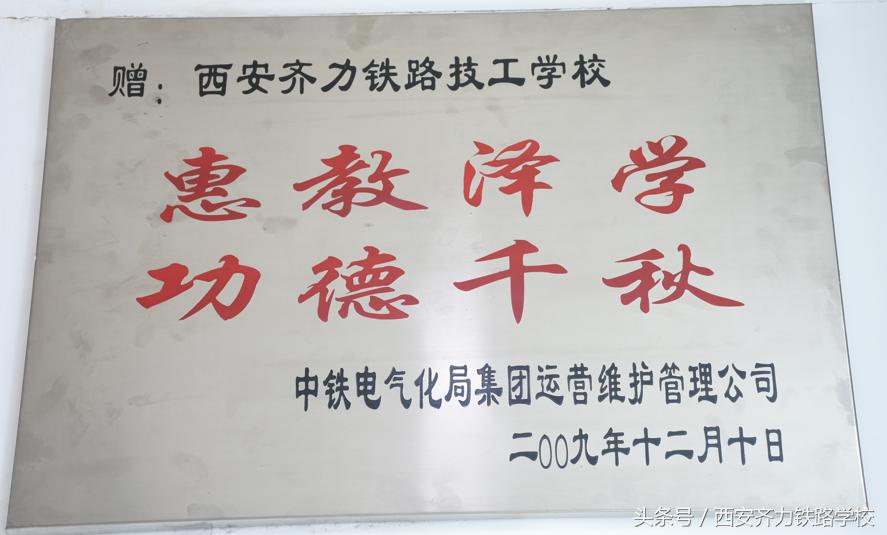 赠：西安齐力铁路技工学校
惠教泽学
功德千秋
中铁电气化局集团运营维护管理公司
二00九年十二月十日
头条号／西安齐力铁路学校